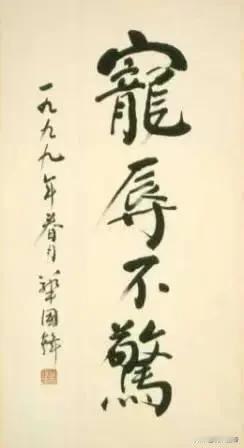 寵辱不驚
一九九九年春月華國鋒